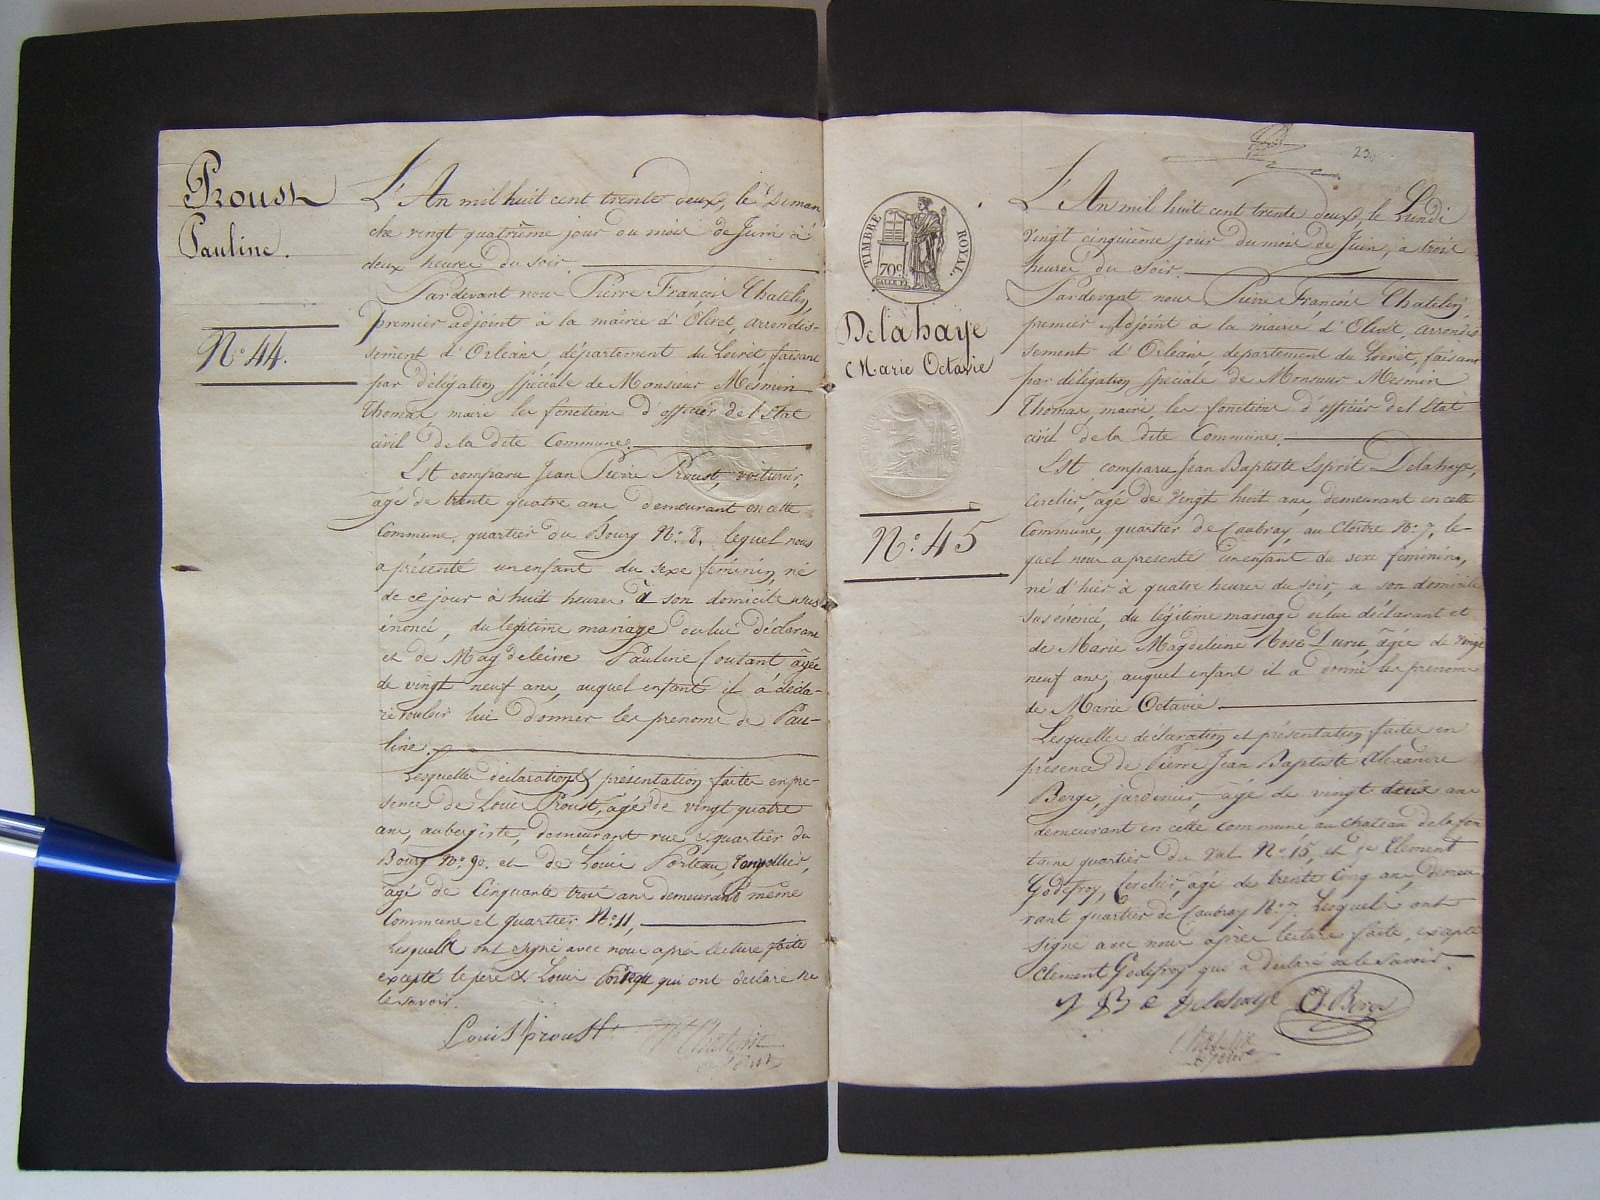 Proust
Pauline.
N.° 44.
L'An mil huit cent trente deux, le Diman
che vingt quatrième jour du mois de Juin à
deux heures du soir.
Pardevant nous Pierre François Chatelin,
premier adjoint à la mairie d'Olivet, arrondis-
sement d'Orléans, département du Loiret, faisant
par délégation spéciale de Monsieur Mesmin
Thomas maire les fonctions d'officier de l'Etat
civil de la dite Commune.
Est comparu Jean Pierre Proust, voiturier,
âgé de trente quatre ans demeurant en cette
Commune, quartier du Bourg N.° 8, lequel nous
a présenté un enfant du sexe féminin, né
de ce jour à huit heures à son domicile sus
énoncé, du légitime mariage de lui déclarant
et de Magdeleine Pauline Coutant âgée
de vingt neuf ans, auquel enfant il a décla-
ré vouloir lui donner les prenoms de Pau-
line.
Lesquelles déclaration & présentation faites en pre-
sence de Louis Proust, âgé de vingt quatre
ans, aubergiste, demeurant rue & quartier du
Bourg N.° 90. et de Louis Porteau, Tonnellier,
âgé de Cinquante trois ans demeurant même
Commune et quartier N.° 11,
Lesquels ont signé avec nous après lecture faite
excepté le père & Louis qui ont déclaré ne
le savoir.
Louis Proust
Chatelin
adjoint
TIMBRE ROYAL.
70c
Delahaye
Marie Octavie
N.° 45
L'An mil huit cent trente deux, le Lundi
vingt cinquième jour du mois de Juin, à trois
heures du soir.
Pardevant nous Pierre François Chatelin,
premier Adjoint à la mairie d'Olivet, arrondis
sement d'Orléans, département du Loiret, faisant
par délégation spéciale de Monsieur Mesmin
Thomas, maire, les fonctions d'officier de l'Etat
civil de la dite Commune.
Est comparu Jean Baptiste Esprit Delahaye,
cerclier, âgé de vingt huit ans, demeurant en cette
Commune, quartier de Caubray, au Cloitre N.° 7, le-
quel nous a présenté un enfant du sexe féminin,
né d'hier à quatre heures du soir, a son domicile
sus énoncé, du légitime mariage de lui déclarant et
de Marie Magdeleine Rose Luru, âgée de vingt
neuf ans, auquel enfant il a donné les prenoms
de Marie Octavie
Lesquelles déclaration et présentation faites en
présence de Pierre Jean Baptiste Alexandre
Berge, jardinier, âgé de vingt deux ans
demeurant en cette commune, au chateau de la fon
taine quartier du Val N.° 15, et de Clement
Godefroy, Cerclier, âgé de trente cinq ans, demeu
rant quartier de Caubray N.° 7. Lesquels ont
signé avec nous après lecture faite, excepté
Clément Godefroy qui a déclaré ne le savoir.
J B E Delahaye A Berge
Chatelin
adjoint